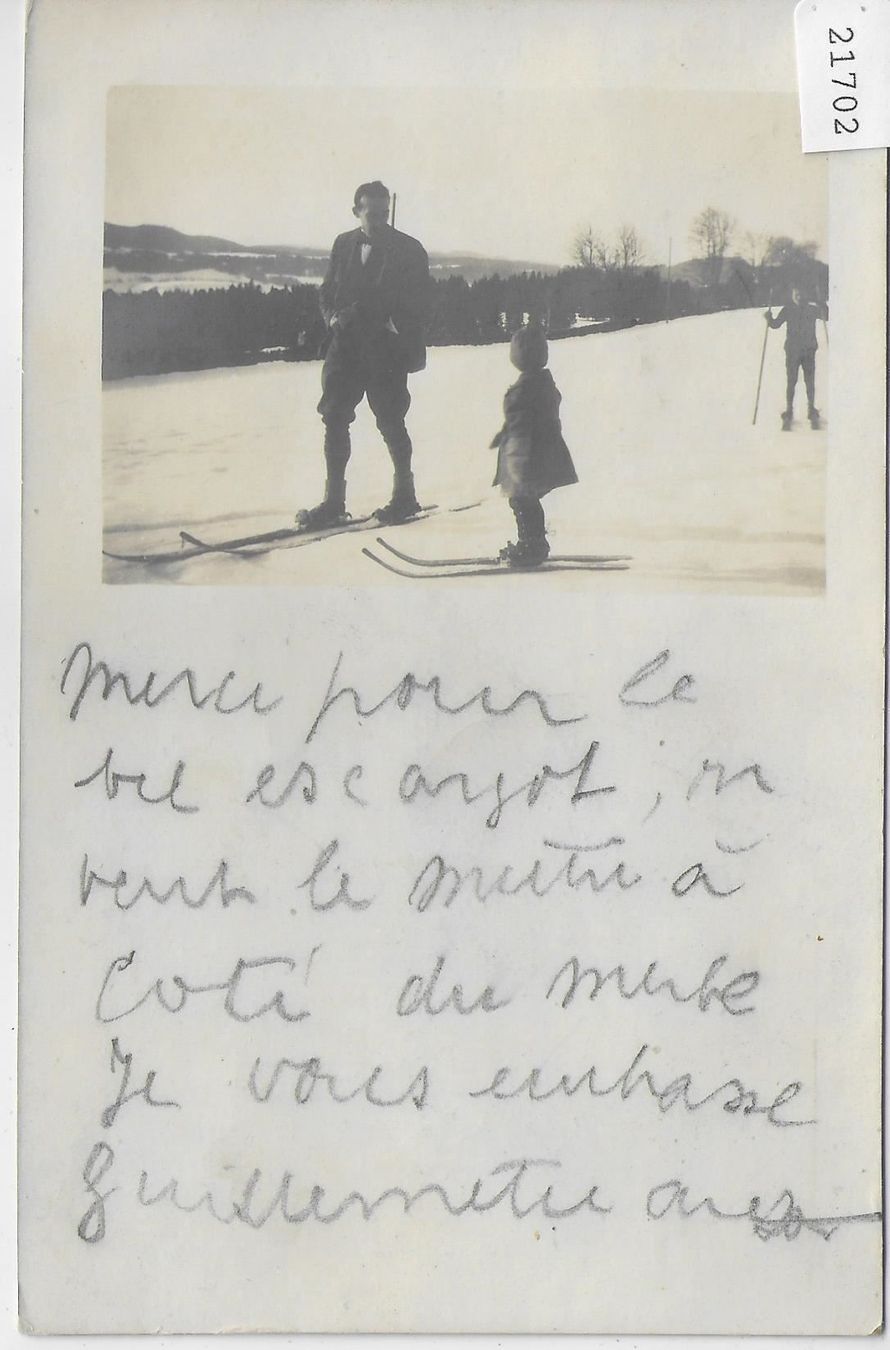 21702
Merci pour le
bel escargot, on
veut le mettre à
Coté du merle
Je vous embrasse
Guillemette aussi